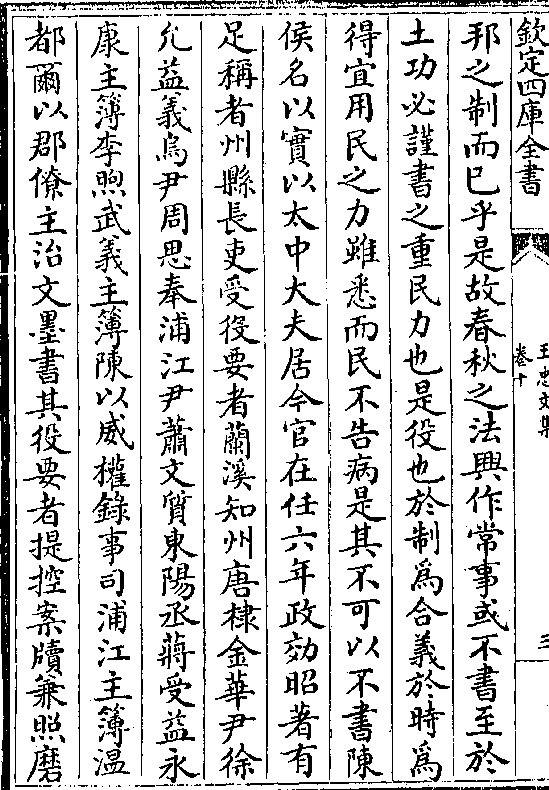 欽定四庫全書
王忠文集
卷十
三
邦之制而已乎是故春秋之法興作常事或不書至於
土功必謹書之重民力也是役也於制為合義於時為
得宜用民之力雖悉而民不告病是其不可以不書陳
侯名以實以太中大夫居今官在任六年政効昭著有
足稱者州縣長吏受役要者蘭溪知州唐棣金華尹徐
允益義烏尹周思奉浦江尹蕭文質東陽丞蔣受益永
康主簿李煦武義主簿陳以威權錄事司浦江主簿温
都爾以郡僚主治文墨書其役要者提控案牘兼照磨